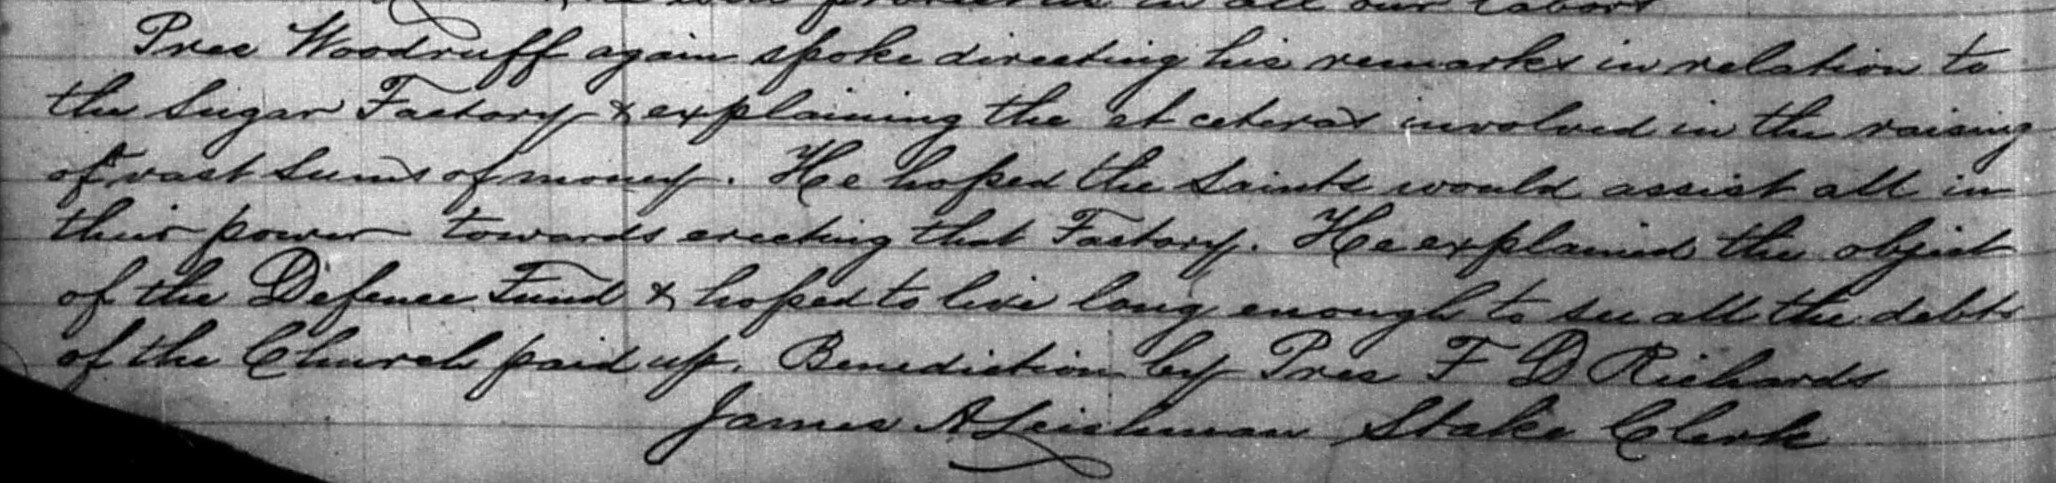 in all our labors
Pres Woodruff again spoke directing his remarks in relation to
the Sugar Factory & explaining the et ceteras involved in the raising
of vast sums of money. He hoped the Saints would assist all in
their power towards erecting that Factory. He explained the object
of the Defence Fund & hoped to live long enough to see all the debts
of the Church paid up. Benediction by Pres F D Richards
James A Leishman Stake Clerk